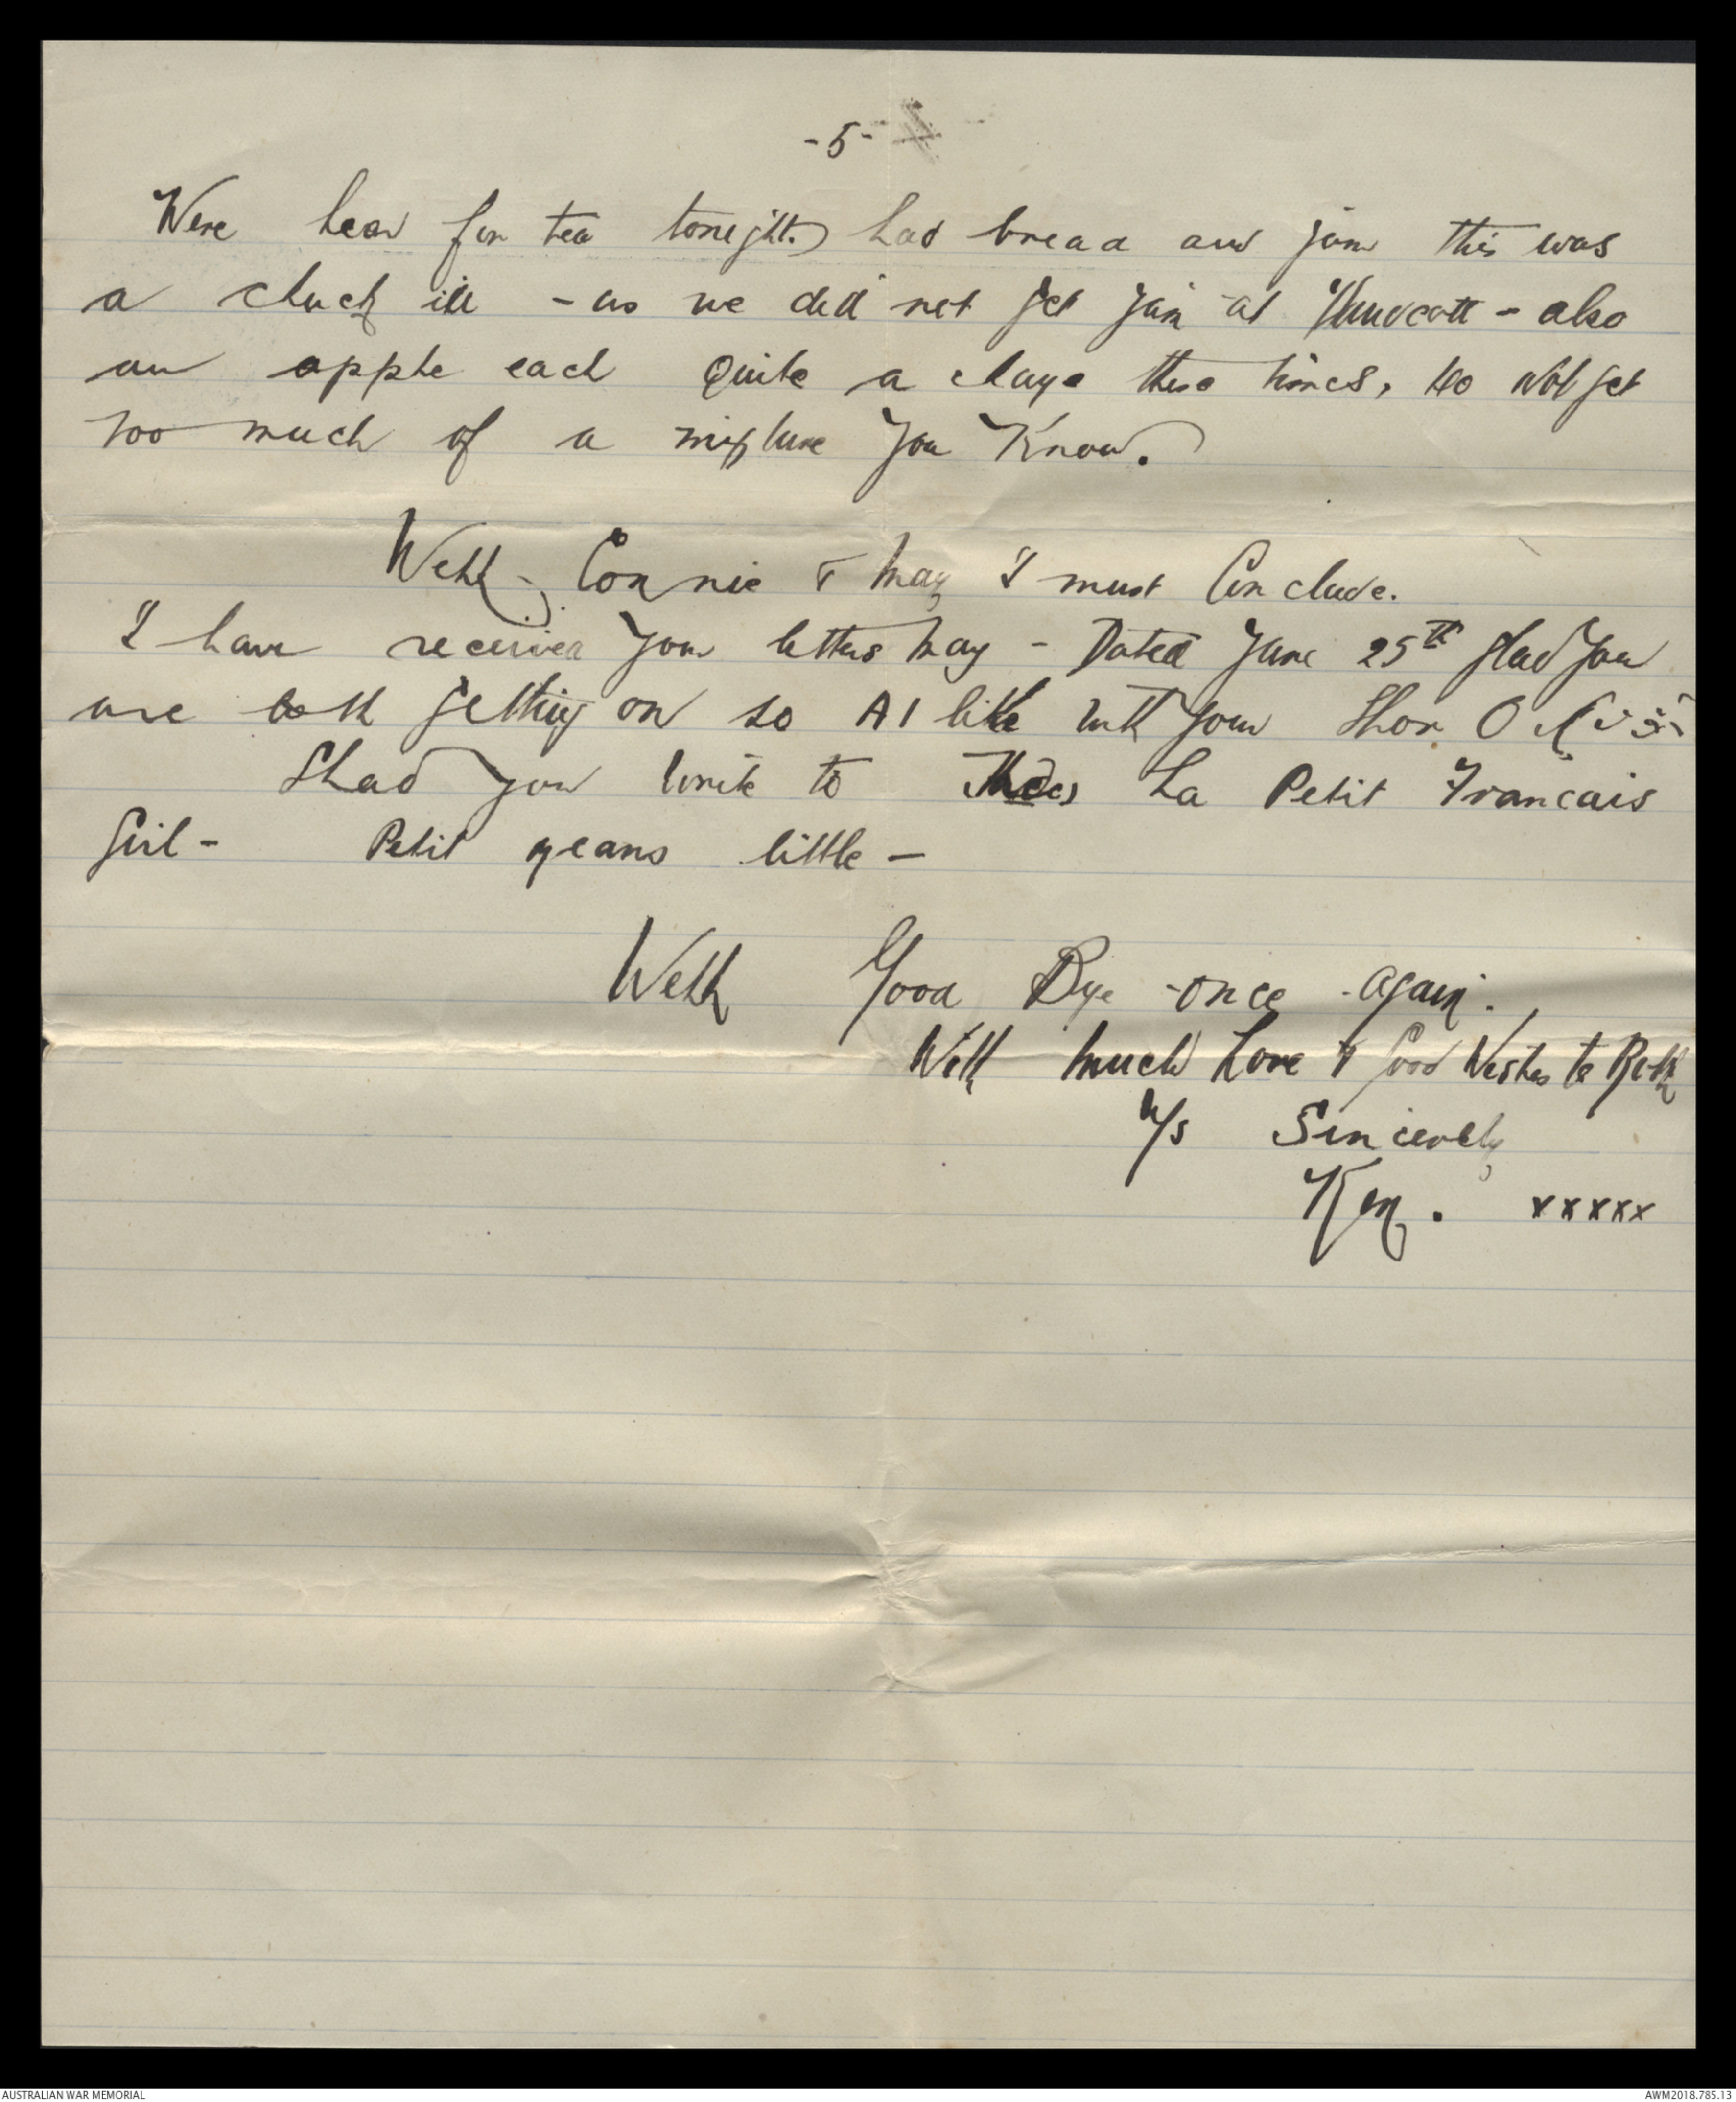 -5-
Were hear for tea tonight. had bread and jam this was
a chuck in - as we did not get jam at Hurdcott - also
an apple each Quite a change these times, do not get
too much of a mixture you know.
Well, Connie & May I must Conclude.
I have received your letters May - Dated June 25th glad you
are both getting on so A1 like with your
Glad you write to La Petit Francais
Girl - Petit means little -
Well Good Bye once again.
With much Love & Good Wishes to Both
Y/s Sincerely
Ken. xxxxx
AUSTRALIAN WAR MEMORIAL
AWM2018.785.13